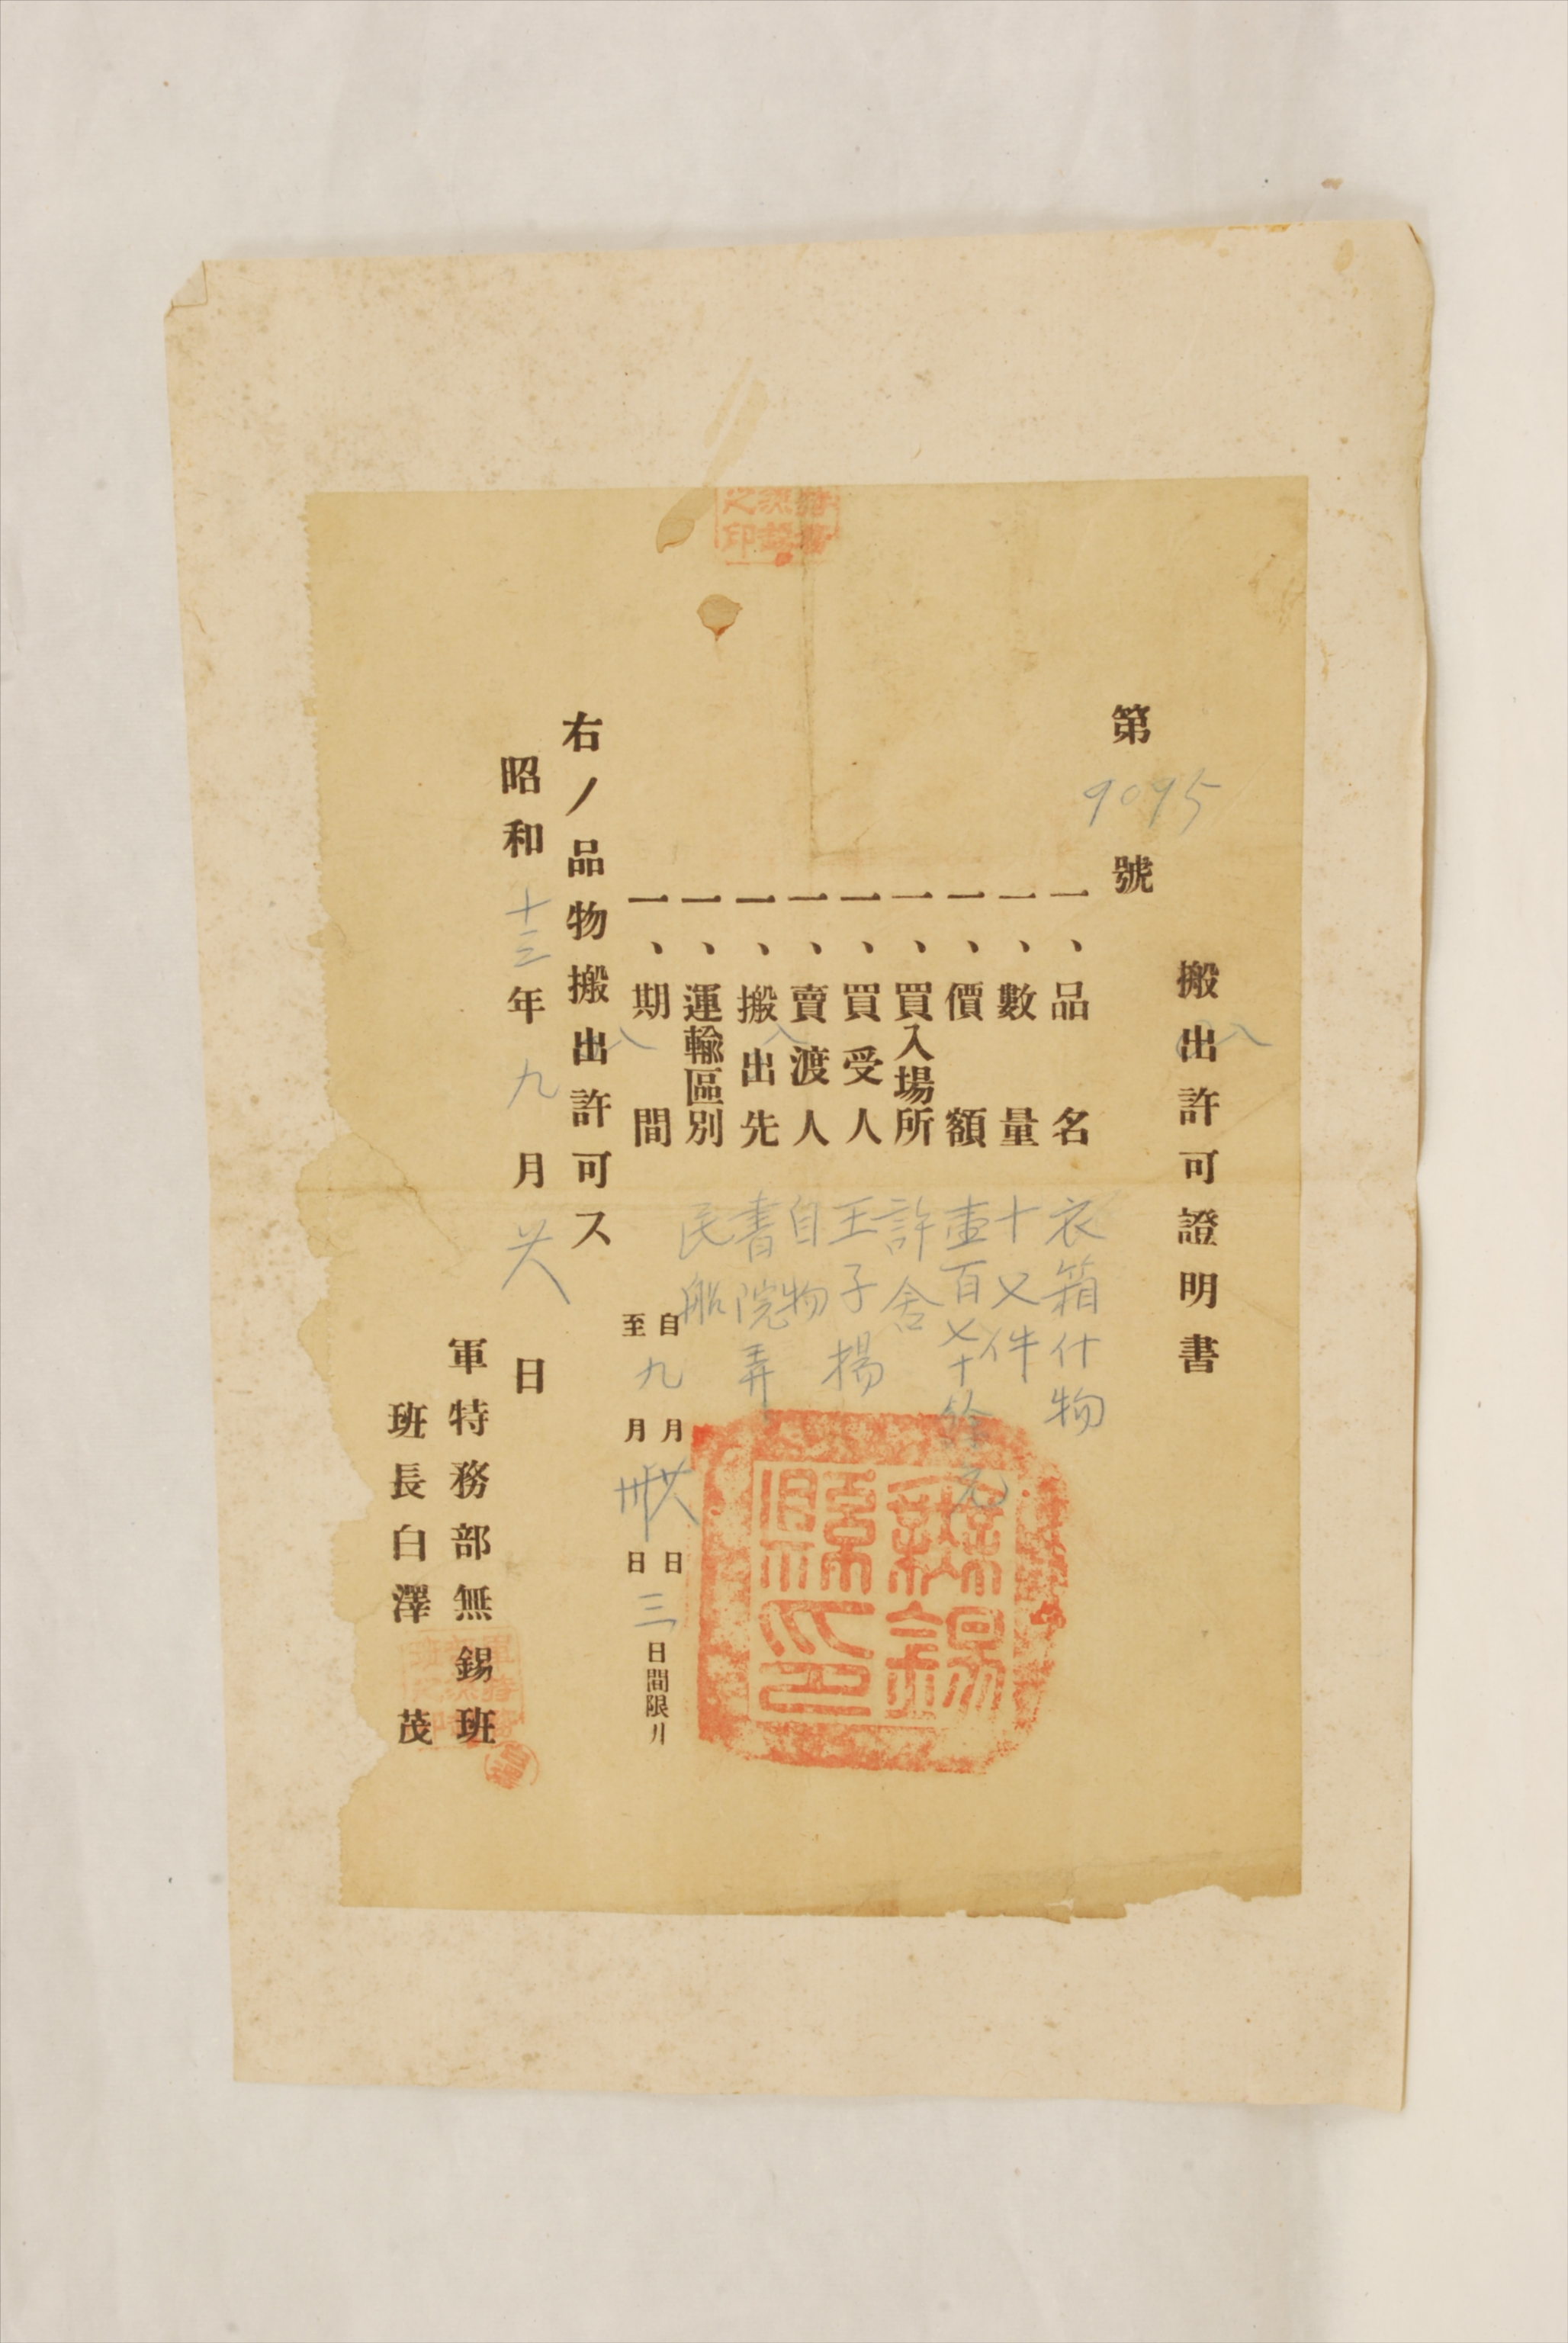 搬出許可證明書
入
第9095號
一、品名 衣箱什物
一、數量 十乂件
一、價額 壹百乂十餘元
一、買入場所 許舍
一、買受人 王子揚
一、賣渡人 自物
一、搬出先 書院弄
入
一、運輸區別 民船
一、期間 自九月廿八日
至 月卅日 三日間限リ
入
右ノ品物搬出許可ス
昭和十三年九月廿八日
軍特務部無錫班
班長白澤茂
無錫
縣印
之印